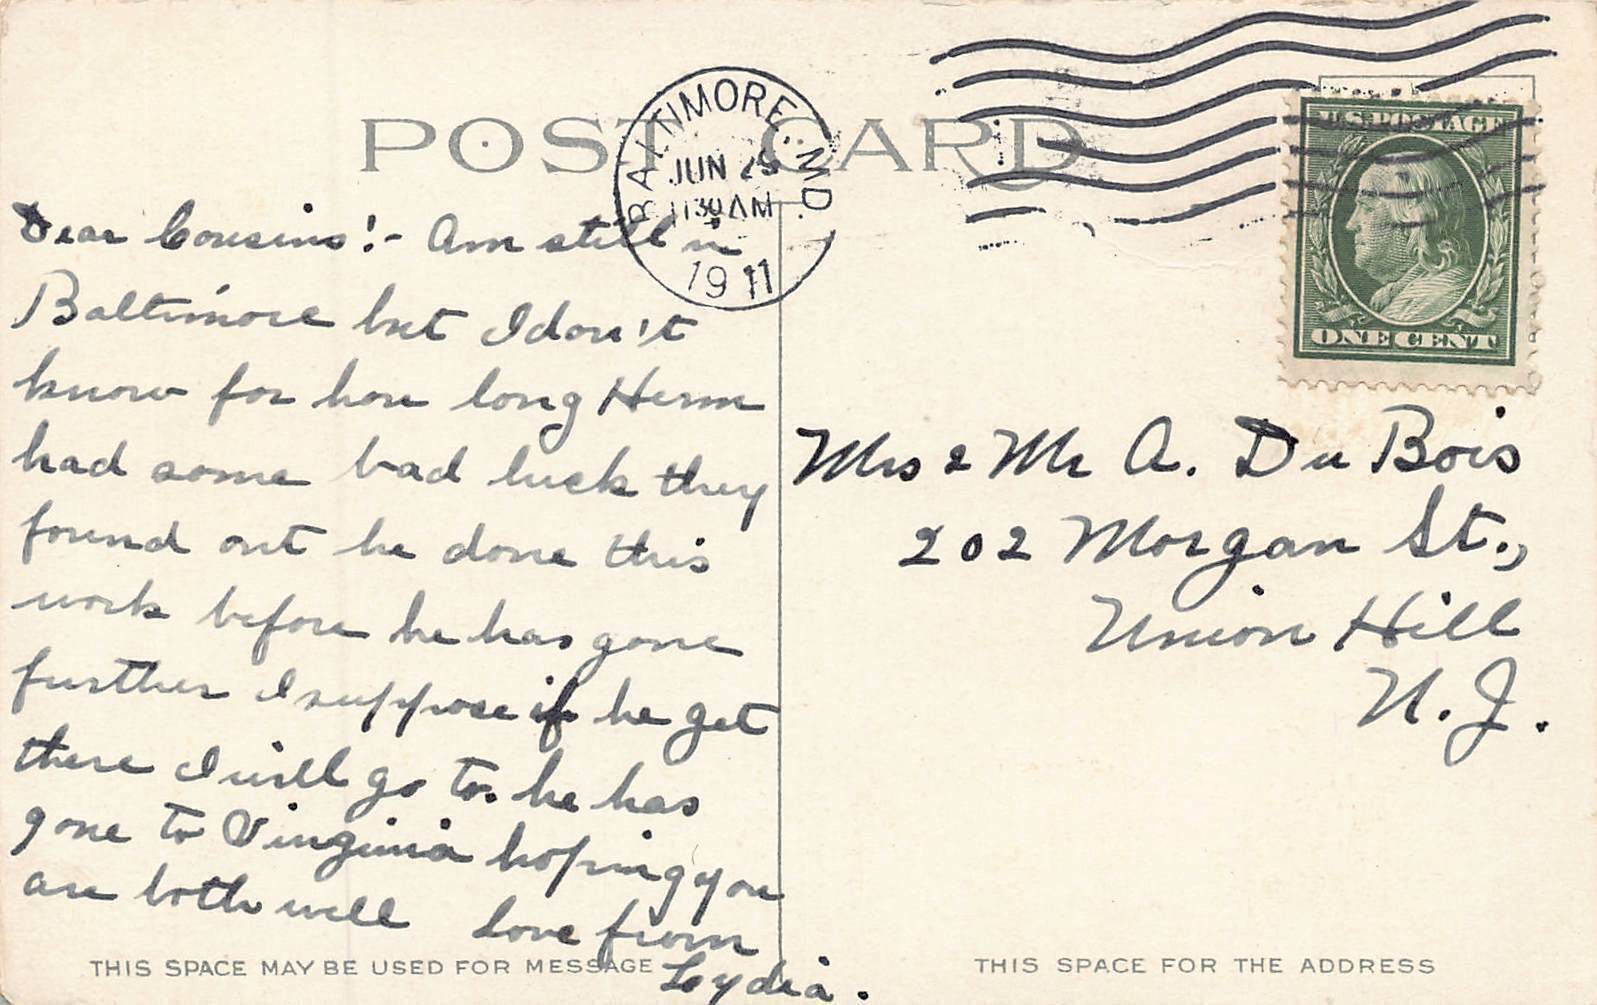 POST CARD
BALTIMORE, MD.
JUN 25
1130 AM
1911
U.S. POSTAGE
ONE CENT
Dear Cousins!- Am still in
Baltimore but I don't
know for how long Herm
had some bad luck they
found out he done this
work before he has gone
further I suppose if he get
there I will go to. he has
gone to Virginia hoping you
are both well Love from
Lydia.
Mrs & Mr A. Du Bois
202 Morgan St.,
Union Hill
N. J.
THIS SPACE MAY BE USED FOR MESSAGE
THIS SPACE FOR THE ADDRESS